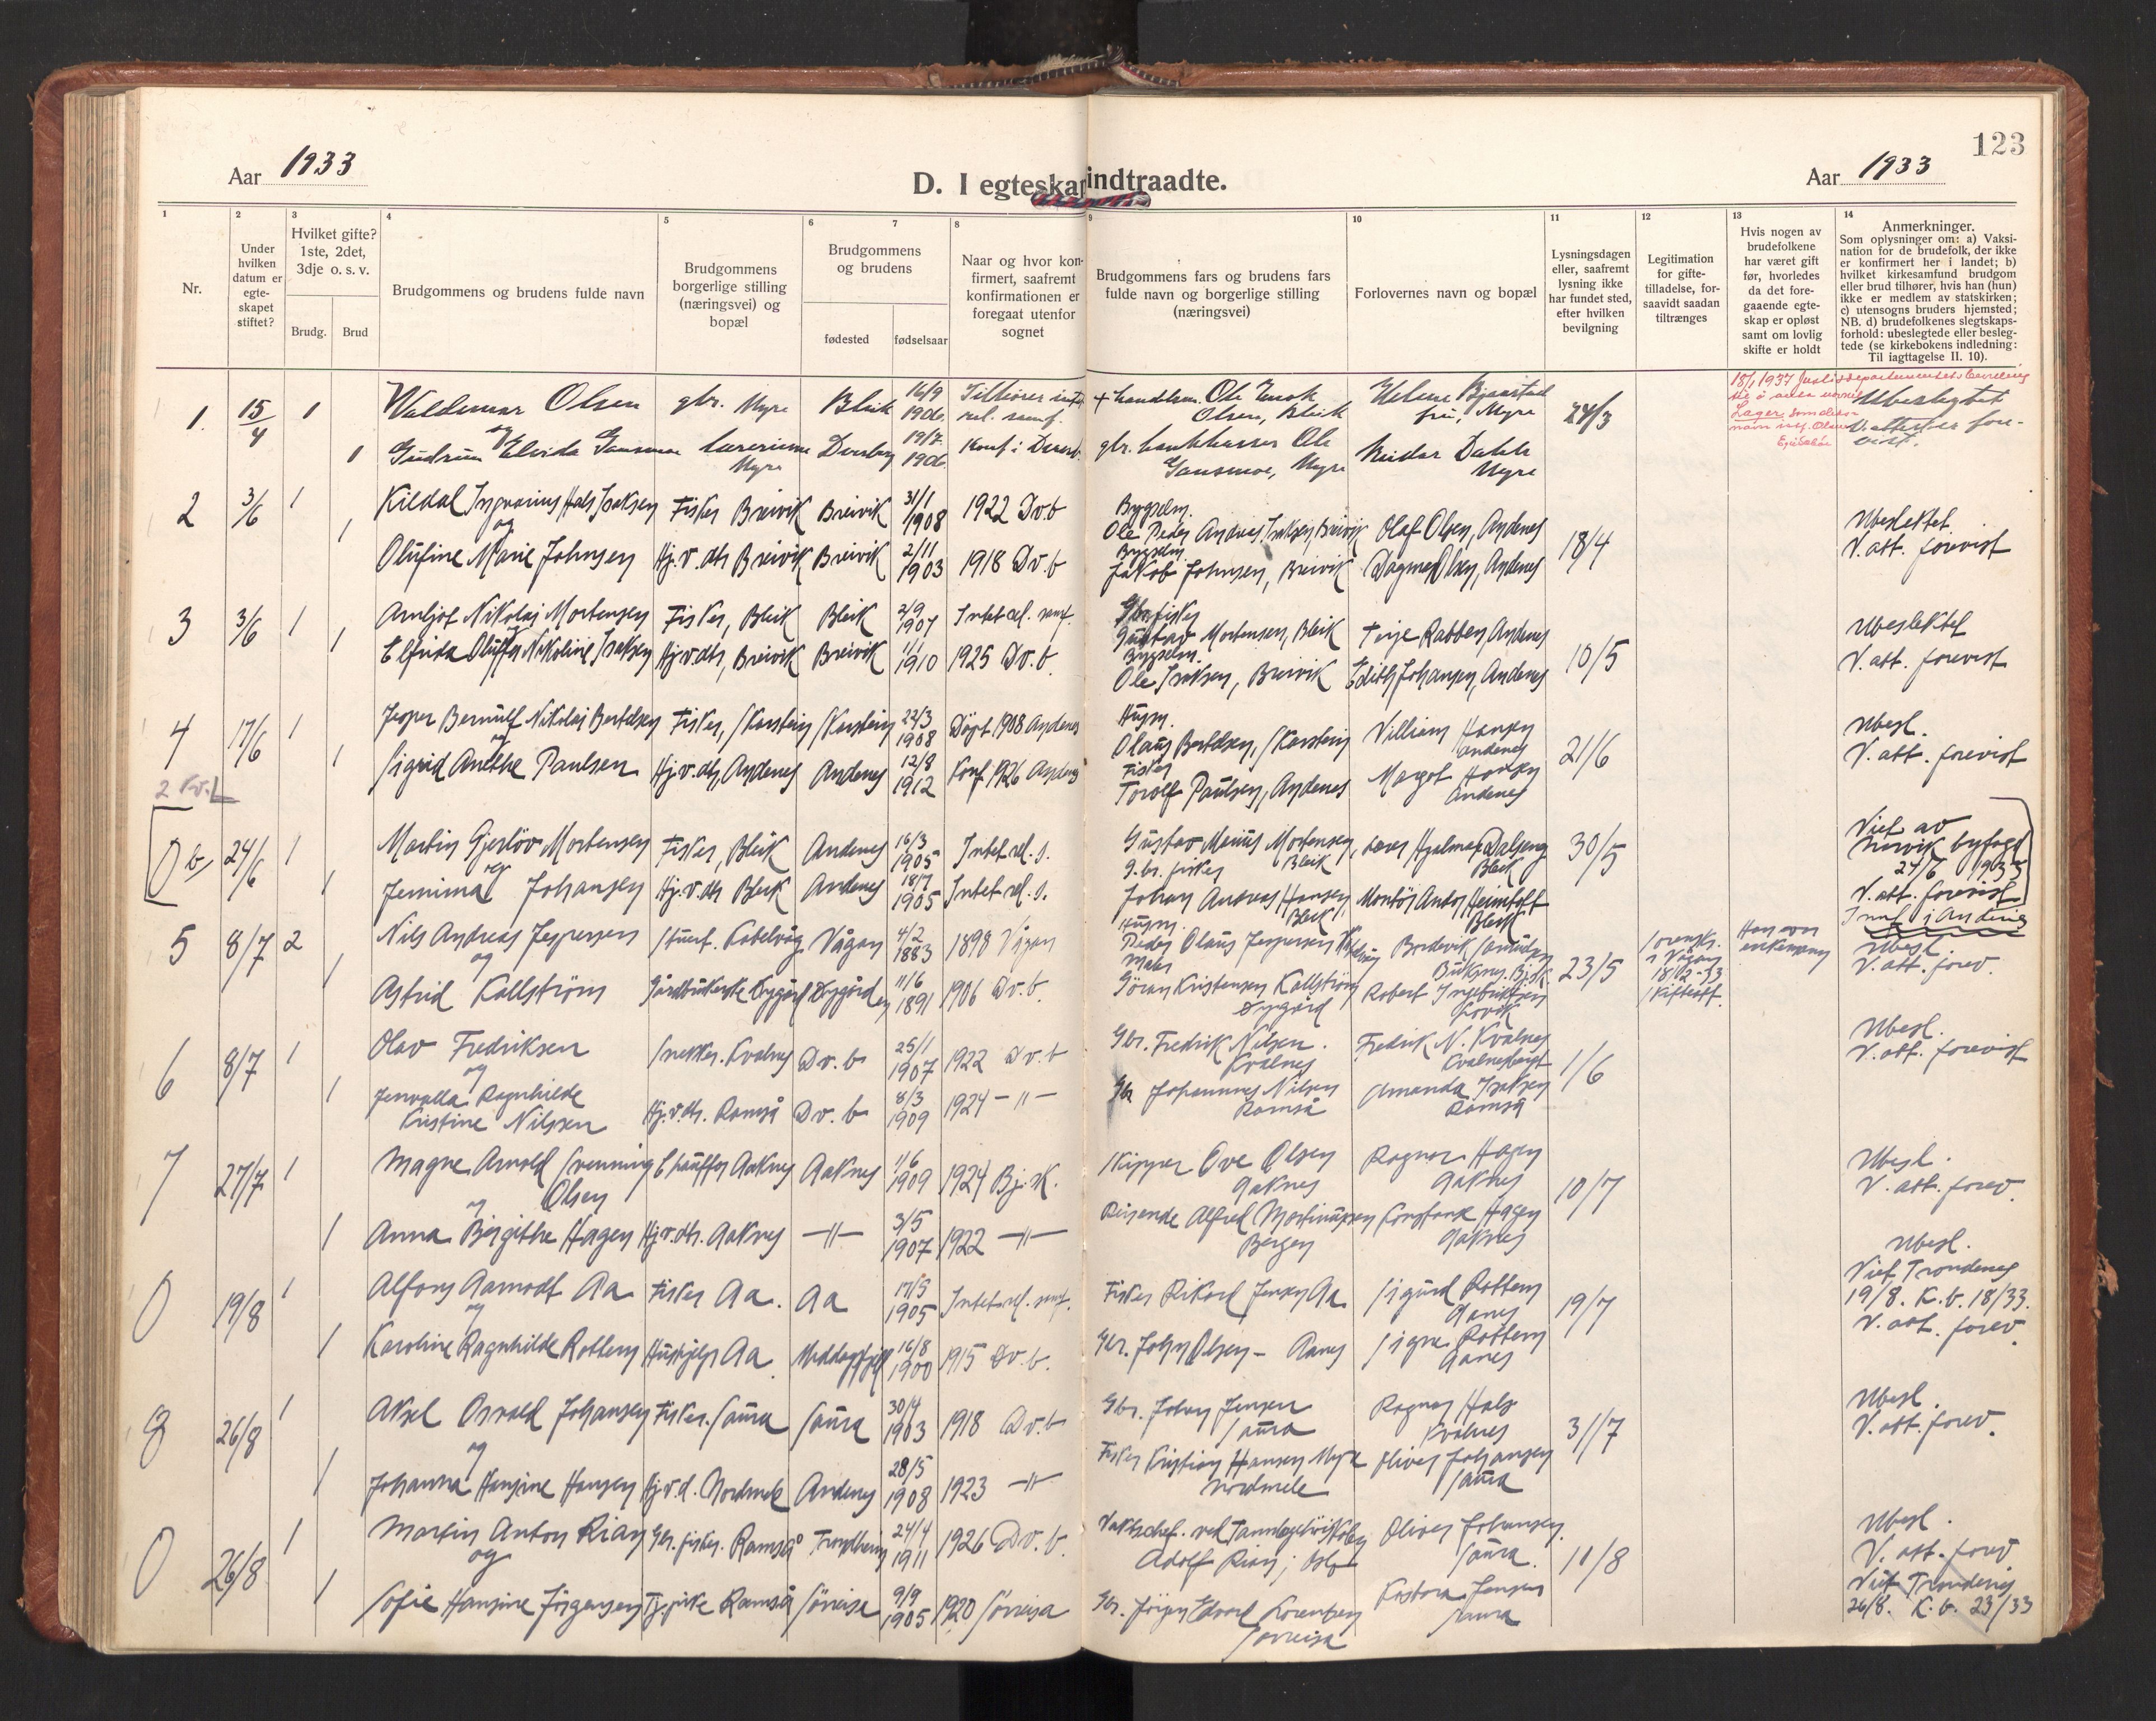 123
Aar 1933
D. I egteskap indtraadte.
Aar 1933
1 2 3 4 5 6 7 8 9 10 11 12 13 14
Nr.
Under hvilken datum er egte-skapet stiftet?
Hvilket gifte? 1ste, 2det, 3dje o. s. v.
Brudg. Brud
Brudgommens og brudens fulde navn
Brudgommens borgerlige stilling (næringsvei) og bopæl
Brudgommens og brudens
fødested fødselsaar
Naar og hvor kon-firmert, saafremt konfirmationen er foregaat utenfor sognet
Brudgommens fars og brudens fars fulde navn og borgerlige stilling (næringsvei)
Forlovernes navn og bopæl
Lysningsdagen eller, saafremt lysning ikke har fundet sted, efter hvilken bevilgning
Legitimation for gifte-tilladelse, for-saavidt saadan tiltrænges
Hvis nogen av brudefolkene har været gift før, hvorledes da det fore-gaaende egte-skap er opløst samt om lovlig skifte er holdt
Anmerkninger.
Som oplysninger om: a) Vaksi-nation for de brudefolk, der ikke er konfirmert her i landet; b) hvilket kirkesamfund brudgom eller brud tilhører, hvis han (hun) ikke er medlem av statskirken; c) utensogns bruders hjemsted; NB. d) brudefolkenes slegtskaps-forhold: ubeslegtede eller besleg-tede (se kirkebokens indledning: Til iagttagelse II. 10).
1. 15/4 1 Waldemar Olsen gbr. Myre Bleik 16/9 1906 Tilhører intet rel. samf. + handelsm. Ole Enok Olsen, Bleik Helene Bjaastad fru, Myre 24/3 Ubeslegtet
18/1 1937 Justisdepartementets bevilling
Lager
og
1 Gudrun Elvida Gansmoe lærerinne Myre Dverberg 19/7 1906 Konf. i Dverb. gbr. bankkasser Ole Gansmoe, Myre Reidar Dahle Myre V. attester fore-vist.
2 3/6 1 Kildal Ingvarius Hals Isaksen Fisker Breivik Breivik 31/1 1908 1922 Dv. b Bygselm. Ole Peder Andreas Isaksen, Breivik Olaf Olsen, Andenes 18/4 Ubeslektet
og
1 Olufine Marie Johnsen Hj.v. dtr Breivik Breivik 2/11 1903 1918 Dv. b Bygselm. Jakob Johnsen, Breivik Dagmar Olsen, Andenes V. att. forevist
3 3/6 1 Arnljot Nikolai Mortensen Fisker, Bleik Bleik 2/9 1907 Intet rel. samf. Gbr. fisker Gustav Mortensen, Bleik Terje Rabben, Andenes 10/5 Ubeslektet
1 Elfrida Oluffa Nikoline Isaksen Hj.v. dtr, Breivik Breivik 1/1 1910 1925 Dv. b. Bygselm. Ole Isaksen, Breivik Edith Johansen, Andenes V. att. forevist
4 17/6 1 Jesper Bernulf Nikolai Bertelsen Fisker, Skarstein Skarstein 22/3 1908 Døpt 1908 Andenes Husm. Olaus Bertelsen, Skarstein William Hansen Andenes 21/6 Ubesl.
og
1 Sigrid Anethe Paulsen Hj.v. dtr, Andenes Andenes 12/8 1912 Konf. 1926 Andenes Fisker Torolf Paulsen, Andenes Margot Hansen Andenes V. att. forevist
0 b 24/6 1 Martin Gjerløv Mortensen Fisker, Bleik Andenes 16/3 1905 Intet rel. s. Gustav Marius Mortensen, g.br. fisker Bleik lærer Hjalmar Dalseng Bleik 30/5 Viet av Narvik byfogd 24/6 1933
og
1 Jemima Johansen Hj.v. dtr Bleik Andenes 18/7 1905 Intet rel. s. Johan Andreas Hansen, Bleik Montør Anders Heimtoft Bleik V. att. forevist Innf. i Andenes
5 8/7 2 Nils Andreas Jespersen Stuert. Kabelvåg Vågan 4/2 1883 1898 Vågan Husm. Peder Olaus Jespersen 23/5 Sorenskr. i Vågan 18/2-33 Skifteatt. Han var enkemann Ubesl.
og
1 Astrid Kallstrøm Gårdbrukerske Dyggård 11/6 1891 1906 Dv. b. Maler Gøran Kristensen Kallstrøm Robert Ingebriktsen Lovik V. att. forev.
6 8/7 1 Olav Fredriksen Snekker. Kvalnes Dv. b 25/1 1907 1922 Dv. b Gbr. Fredrik Nilsen. Kvalnes Fredrik N. Kvalnes 1/6 Ubesl.
og
1 Jenvalla Ragnhilde Kristine Nilssen Hj.v. dtr. Ramså Dv. b 8/3 1909 1924 -"- Gbr Johannes Nilsen Ramså Amanda Isaksen Ramså V. att. forevist
7 27/7 1 Magne Arnold Svenning Olsen Chauffør Aaknes Aaknes 1/6 1909 1924 Bj.sk. Skipper Ove Olsen Aaknes Ragnar Hagen Aaknes 10/7 Ubesl.
og
1 Anna Birgithe Hagen Hj.v. dtr. Aaknes -"- 3/5 1907 1922 -"- Reisende Alfred Martinussen Bergen Konstanse Hagen Aaknes V. att. forev.
0 19/8 1 Alfons Aamodt Aa Fisker Aa. Aa 17/5 1905 Intet rel. samf. Fisker Rikard Jensen Aa Sigurd Rottem Aanes 19/7 Ubesl. Viet Trondenes 19/8. K.b. 18/33.
og
1 Karoline Ragnhilde Rottem Hushjelp Aa 16/8 1900 1915 Dv. b. Gbr. John Olsen - Aanes Signe Rottem Aanes V. att. forev.
8 26/8 1 Aksel Osvald Johansen Fisker. Saura Saura 30/4 1903 1918 Dv. b Gbr. Johan Jensen Saura Ragnar Hals Kvalnes 31/7 Ubesl.
og
1 Johanna Hansine Hansen Hj.v.d. Nordmele Andenes 28/5 1908 1923 -"- Fisker Kristian Hansen Myre Nordmele Oliver Johansen Saura V. att. forev.
0 26/8 1 Martin Anton Rian Gbr. fisker. Ramså Trondheim 24/4 1911 1926 Dv. b. Adolf Rian; Oslo Oliver Johansen. Saura. 11/8 Ubesl.
og
1 Sofie Hansine Jørgensen Tj.pike Ramså Sørreisa 9/9 1905 1920 Sørreisa Gbr. Jørgen Edvard Lorentsen Sørreisa Jensen Saura V. att. forev. Viet Trondenes 26/8. K.b. 23/33